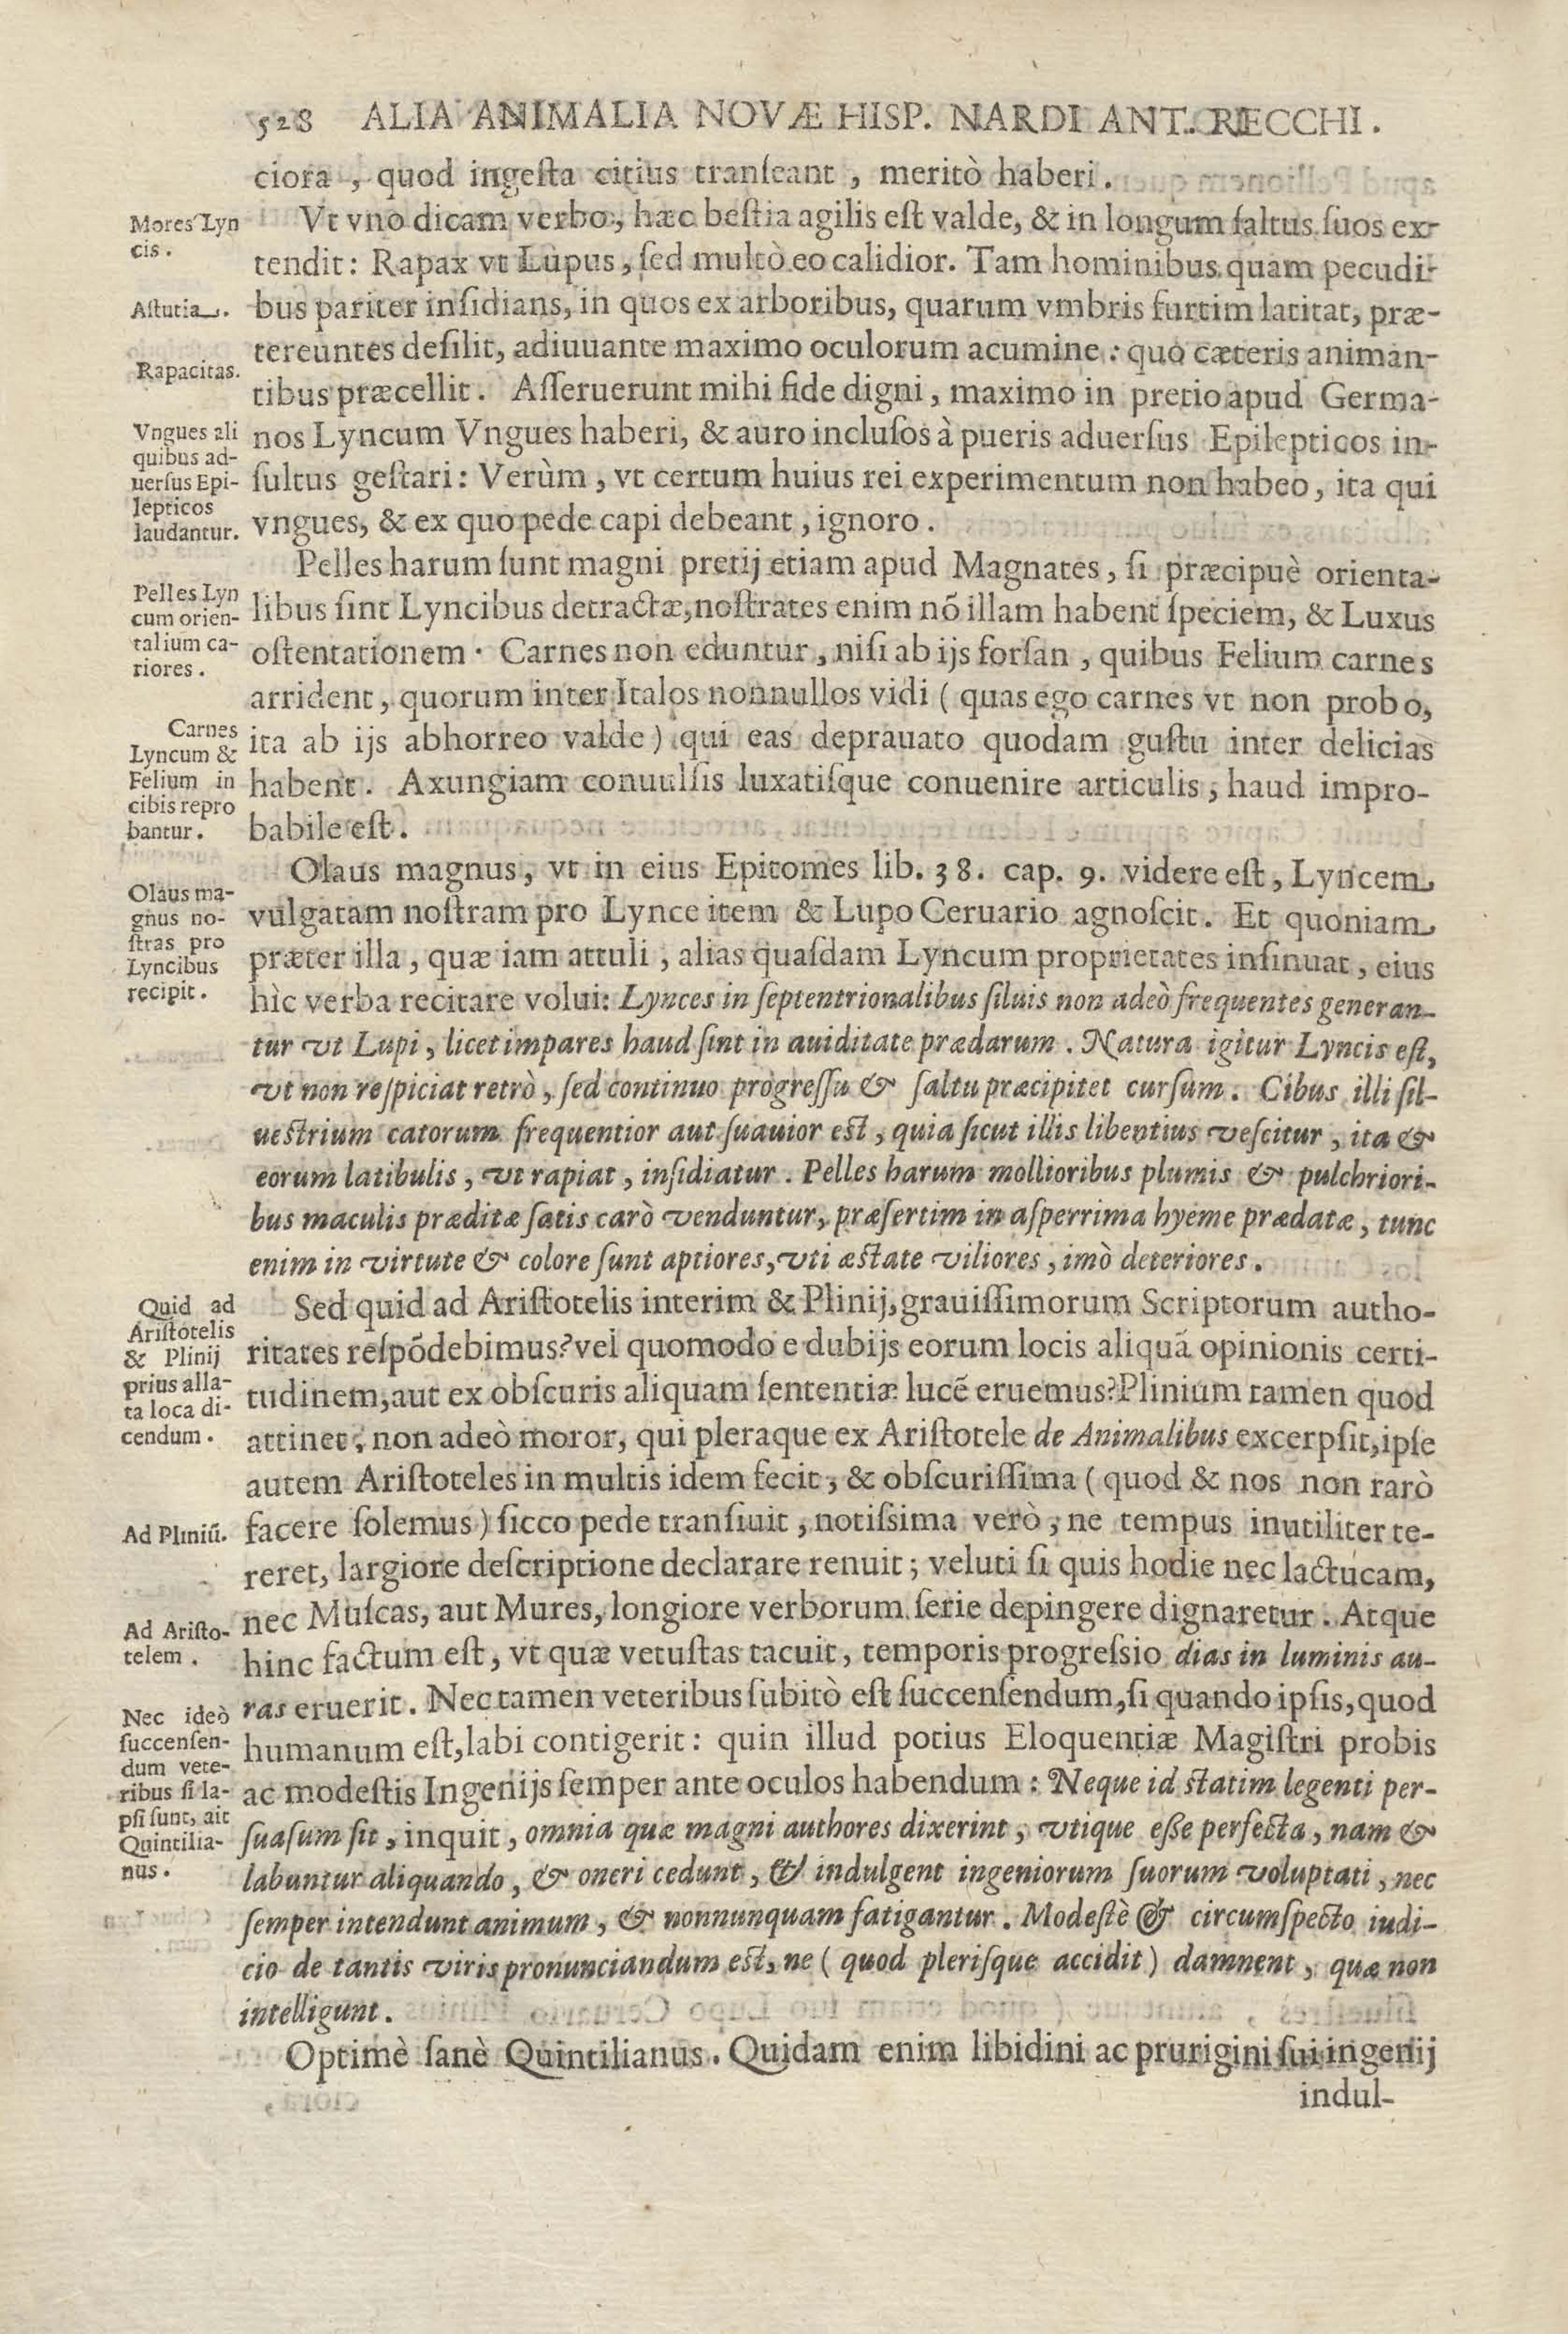 528 ALIA ANIMALIA NOVÆ HISP. NARDI ANT. RECCHI.
ciora, quod ingeſta citius tranſeant, meritò haberi.
Mores Lyn
cis.
Vt vno dicam verbo, hæc beſtia agilis eſt valde, & in longum ſaltus ſuos ex-
tendit: Rapax vt Lupus, ſed multò eo calidior. Tam hominibus quam pecudi-
Aſtutia.
bus pariter inſidians, in quos ex arboribus, quarum vmbris furtim latitat, præ-
tereuntes deſilit, adiuuante maximo oculorum acumine: quo cæteris animan-
Rapacitas.
tibus præcellit. Aſſeruerunt mihi fide digni, maximo in pretio apud Germa-
Vngues ali
quibus ad-
uerſus Epi-
lepticos
laudantur.
nos Lyncum Vngues haberi, & auro incluſos à pueris aduerſus Epilepticos in-
ſultus geſtari: Verùm, vt certum huius rei experimentum non habeo, ita qui
vngues, & ex quo pede capi debeant, ignoro.
Pelles harum ſunt magni pretij etiam apud Magnates, ſi præcipuè orienta-
Pelles Lyn
cum orien-
talium ca-
riores.
libus ſint Lyncibus detractæ, noſtrates enim nõ illam habent ſpeciem, & Luxus
oſtentationem. Carnes non eduntur, niſi ab ijs forſan, quibus Felium carnes
arrident, quorum inter Italos nonnullos vidi (quas ego carnes vt non probo,
Carnes
Lyncum &
Felium in
cibis repro
bantur.
ita ab ijs abhorreo valde) qui eas deprauato quodam guſtu inter delicias
habent. Axungiam conuulſis luxatiſque conuenire articulis, haud impro-
babile eſt.
Olaus magnus, vt in eius Epitomes lib. 38. cap. 9. videre eſt, Lyncem
Olaus ma-
gnus no-
ſtras pro
Lyncibus
recipit.
vulgatam noſtram pro Lynce item & Lupo Ceruario agnoſcit. Et quoniam
præter illa, quæ iam attuli, alias quaſdam Lyncum proprietates inſinuat, eius
hìc verba recitare volui: Lynces in ſeptentrionalibus ſiluis non adeò frequentes generan-
tur vt Lupi, licet impares haud ſint in auiditate prædarum. Natura igitur Lyncis eſt,
vt non reſpiciat retrò, ſed continuo progreſſu & ſaltu præcipitet curſum. Cibus illi ſil-
ueſtrium catorum frequentior aut ſuauior eſt, quia ſicut illis libentius veſcitur, ita &
eorum latibulis, vt rapiat, inſidiatur. Pelles harum mollioribus plumis & pulchriori-
bus maculis præditæ ſatis carò venduntur, præſertim in aſperrima hyeme prædatæ, tunc
enim in virtute & colore ſunt aptiores, vti æſtate viliores, imò deteriores.
Quid ad
Ariſtotelis
& Plinij
prius alla-
ta loca di-
cendum.
Sed quid ad Ariſtotelis interim & Plinij, grauiſſimorum Scriptorum autho-
ritates reſpõdebimus? vel quomodo e dubijs eorum locis aliquã opinionis certi-
tudinem, aut ex obſcuris aliquam ſententiæ lucẽ eruemus? Plinium tamen quod
attinet, non adeò moror, qui pleraque ex Ariſtotele de Animalibus excerpſit, ipſe
autem Ariſtoteles in multis idem fecit, & obſcuriſſima (quod & nos non rarò
Ad Pliniũ.
facere ſolemus) ſicco pede tranſiuit, notiſsima verò, ne tempus inutiliter te-
reret, largiore deſcriptione declarare renuit; veluti ſi quis hodie nec lactucam,
Ad Ariſto-
telem.
nec Muſcas, aut Mures, longiore verborum ſerie depingere dignaretur. Atque
hinc factum eſt, vt quæ vetuſtas tacuit, temporis progreſsio dias in luminis au-
Nec ideò
ſuccenſen-
dum vete-
ribus ſi la-
pſi ſunt, ait
Quintilia-
nus.
ras eruerit. Nec tamen veteribus ſubitò eſt ſuccenſendum, ſi quando ipſis, quod
humanum eſt, labi contigerit: quin illud potius Eloquentiæ Magiſtri probis
ac modeſtis Ingenijs ſemper ante oculos habendum: Neque id ſtatim legenti per-
ſuaſum ſit, inquit, omnia quæ magni authores dixerint, vtique eſſe perfecta, nam &
labuntur aliquando, & oneri cedunt, & indulgent ingeniorum ſuorum voluptati, nec
ſemper intendunt animum, & nonnunquam fatigantur. Modeſtè & circumſpecto iudi-
cio de tantis viris pronunciandum eſt, ne (quod pleriſque accidit) damnent, quæ non
intelligunt.
Optimè ſanè Quintilianus. Quidam enim libidini ac prurigini ſui ingenij
indul-